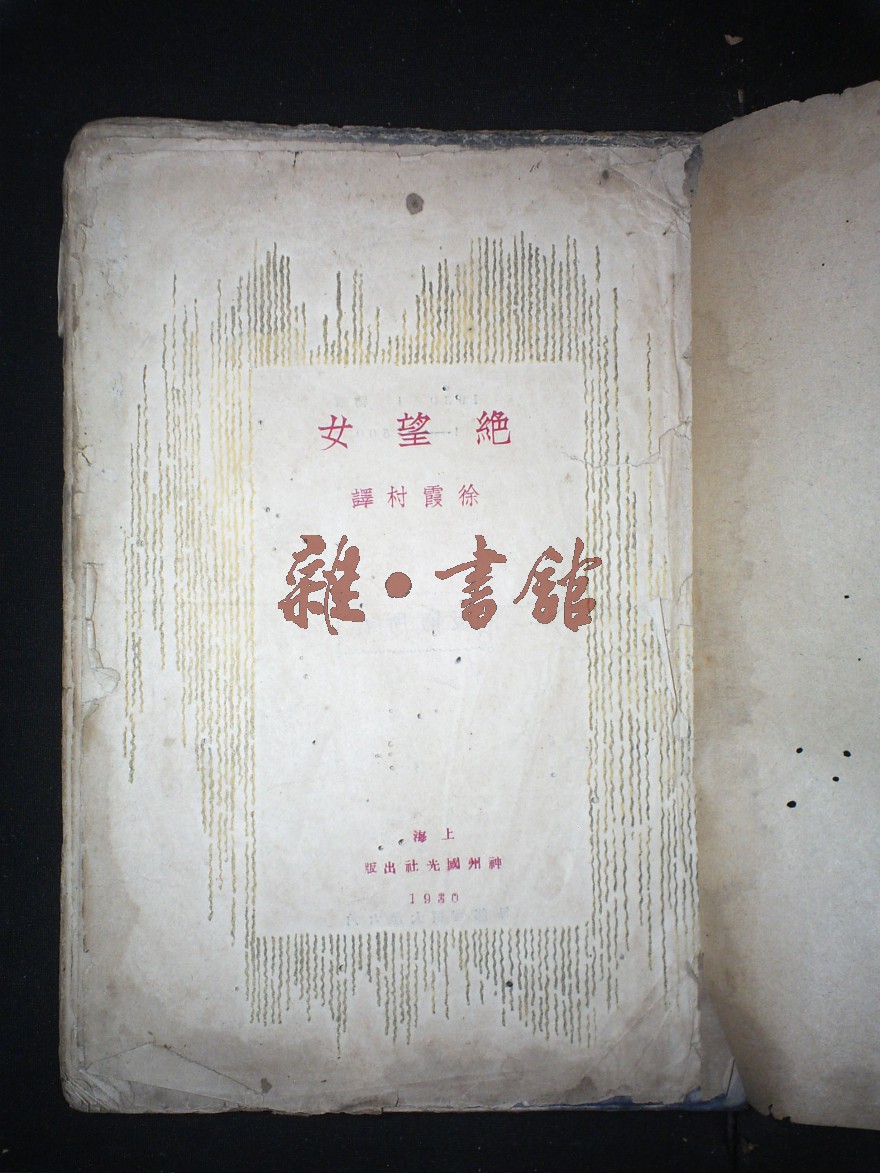 絕望女
徐霞村譯
雜·書館
上海
神州國光社出版
1930